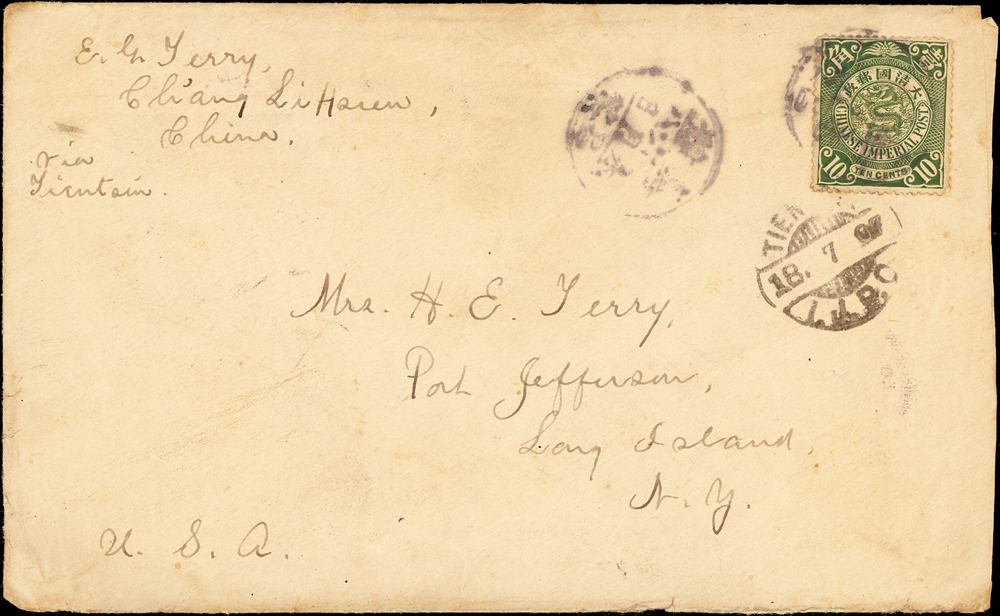 E. G. Terry,
Ch'ang Li Hsien,
China.
Via
Tientsin.
角 壹
大清國郵政
CHINESE IMPERIAL POST
10 TEN CENTS 10
TIEN
18. 7 07
I.J.P.O
Mrs. H. E. Terry,
Port Jefferson,
Long Island,
N. Y.
U. S. A.